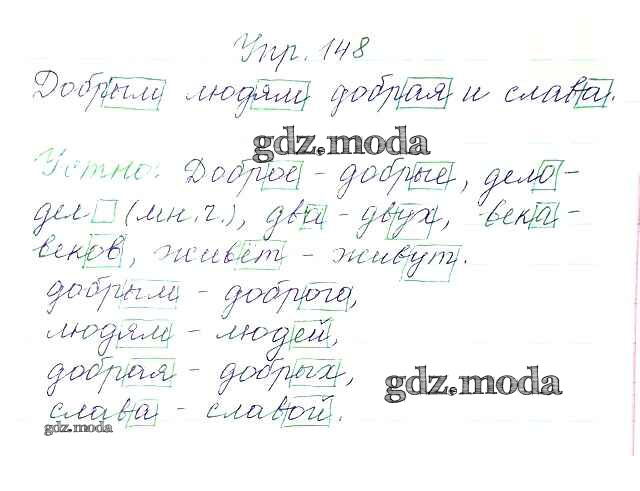 Упр. 148
Добрым людям добрая и слава.
gdz.moda
Устно: Доброе - добрые, дело -
дел (мн.ч.), два - двух, века -
веков, живёт - живут.
добрым - доброго,
людям - людей,
добрая - добрых,
gdz.moda
слава - славой.
gdz.moda